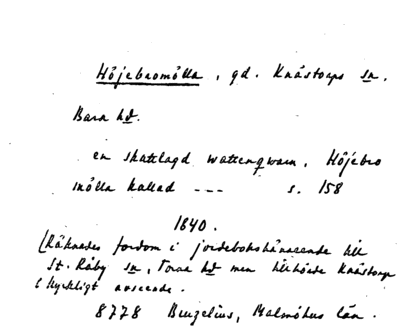 Höjebromölla, gd. Knästorps sn.
Bara hd.
en skattlagd wattenqwarn, Höjebro
mölla kallad --- s. 158
1840.
(Räknades fordom i jordebokshänseende till
St. Råby sn, Torna hd men tillhörde Knästorp
i kyrkligt avseende.
8778 Bruzelius, Malmöhus län.